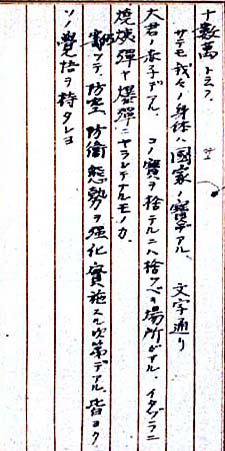 十數萬トユフ.
サテモ我々ノ身体ハ國家ノ寶デアル 文字通リ
大君ノ赤子デアル. コノ寶ヲ捨テルニハ捨ツベキ場所ガアル. イタヅラニ
燒夷彈ヤ爆彈ニヤラレテナルモノカ.
テ. 防空防衛態勢ヲ强化實施スル次第デアル 皆ヨク
ソノ覺悟ヲ持タレヨ